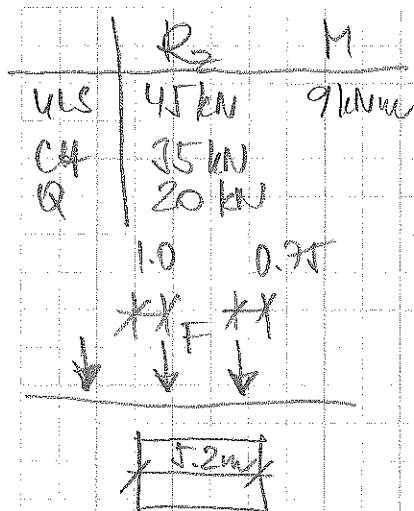 Rz M
ULS 45 kN 9 kNm
CH 35 kN
Q 20 kN
1.0 0.75
F
5.2m